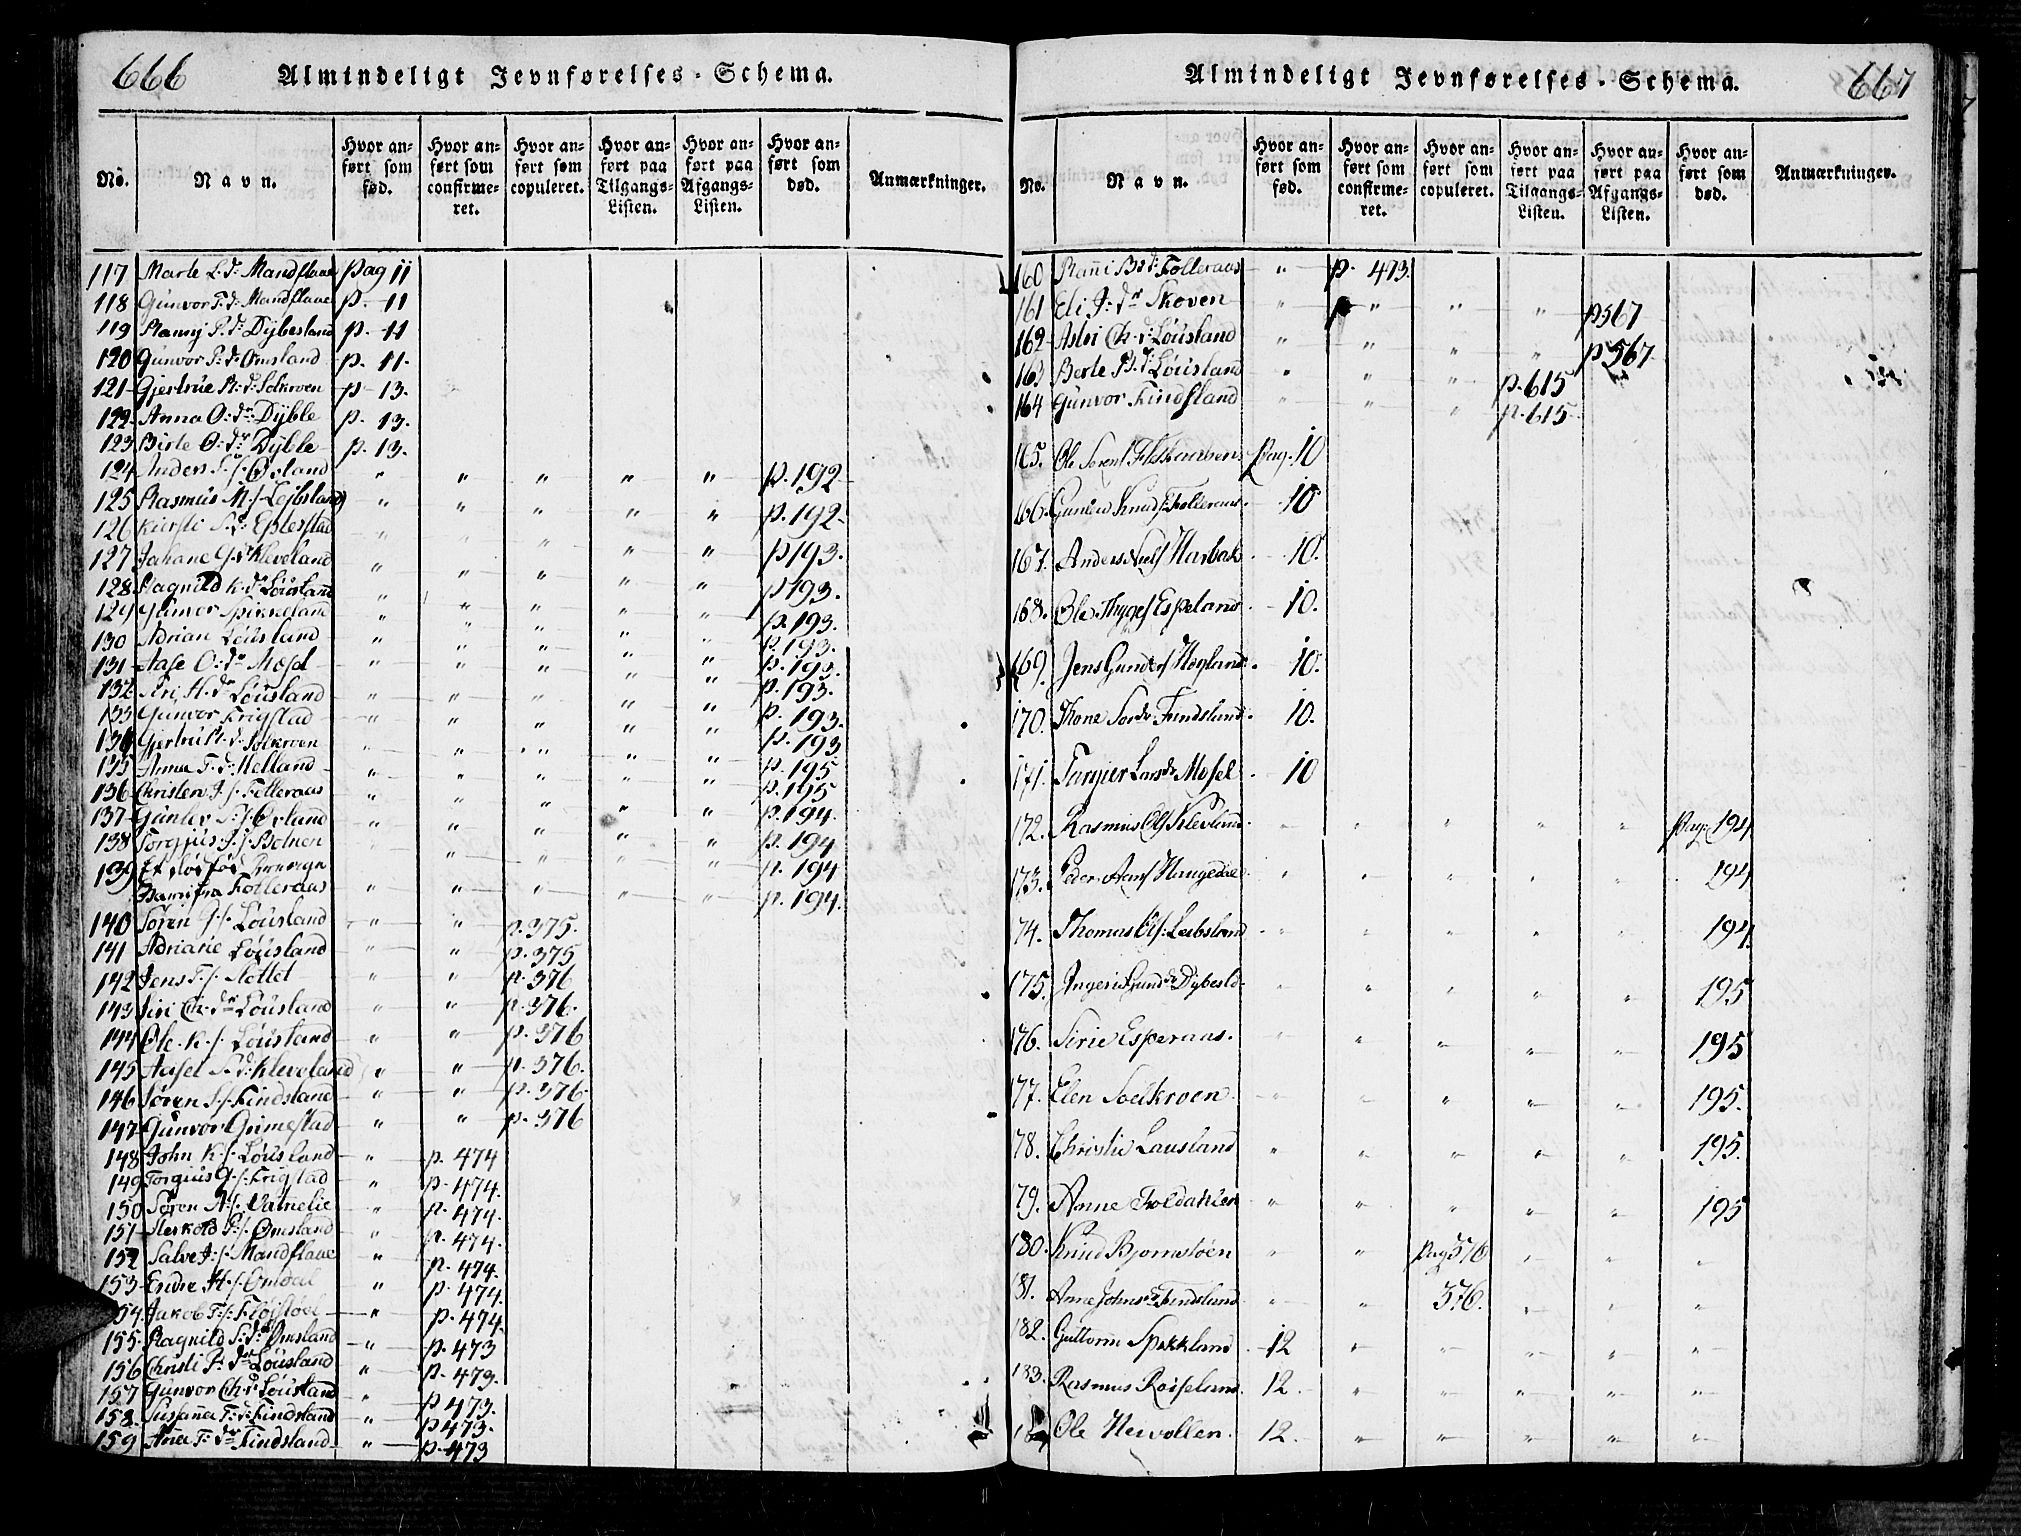 666
Almindeligt Jevnførelses-Schema.
No. Navn. Hvor anført som fød. Hvor anført som confirmeret. Hvor anført som copuleret. Hvor anført paa Tilgangs-Listen. Hvor anført paa Afgangs-Listen. Hvor anført som død. Anmærkninger.
117 Marte L.d: Mandflaae Pag 11
118 Gunvor T.d: Mandflaae p. 11
119 P.d: Dybesland p. 11
120 Gunvor P:dr Omsland p. 11.
121 Gjertrue d: Solkroen p. 13.
122 Anna O:dr Dyble p. 13.
123 Birte O:dr Dyble p. 13.
124 Anders S./. Øsland " " " " " p. 192
125 Rasmus M./. Lejbsland " " " " " p. 192
126 Kiersti S.d: Eplestad " " " " " p 193.
127 Johane G.dr Kleveland " " " " " p 193.
128 Ragnild K.dr Løusland " " " " " p. 193.
129 Gunvor " " " " " p. 193.
130 Adrian Løusland " " " " " p. 193.
131 Aase O:dr Mosel " " " " " p. 193.
132 Siri H.dr Løusland " " " " " p. 193.
133 Gunvor Frigstad " " " " " p. 193
134 Gjertru d: Solkroen " " " " " p. 195
135 Anna T.d: Melland " " " " " p. 195
136 Christen J./. Folleraas " " " " " p. 194.
137 Gunler S./. Øsland " " " " " p. 194
138 Torgjus J./. Bolnen " " " " " p. 194
139 Et
Barn fra Folleraas " " " " " p. 194.
140 Søren J./. Løusland " " p. 375.
141 Adriane Løusland " " p. 375
142 Jens T./. Slottet " " p. 376
143 Siri Ch.dr Løusland " " p. 376.
144 Ole K./. Løusland " " p. 376
145 Aasel S.d: Kleveland " " p. 376.
146 Søren S./. Findsland " " p. 376
147 Gunvor Grimestad " " p. 376
148 John K./. Løusland " p. 474
149 Torgius G./. Frigstad " p. 474.
150 Søren A./. Vatnelie " p. 474.
151 Sterkold P./. Omsland " p. 474.
152 Salve J:/. Mandflaae " p. 474.
153 Endre H./. Omdal " p. 474.
154 Jakob T./. Fløistøel " p. 474.
155 Ragnild S:dr Omsland " p. 473
156 Christi P:dr Løusland " p. 473.
157 Gunvor Ch.d: Løusland " p 473.
158 Susanna T:d: Findsland " p 473.
159 Anna T:dr Findsland " p. 473
Almindeligt Jevnførelses-Schema.
667
No. Navn. Hvor anført som fød. Hvor anført som confirmeret. Hvor anført som copuleret. Hvor anført paa Tilgangs-Listen. Hvor anført paa Afgangs-Listen. Hvor anført som død. Anmærkninger.
160 Ranni Bd: Folleraas " p. 473.
161 Eli J:dr Skoven " " " " p 567
162 Aslei Ch.d: Løusland " " " " p 567.
163 Berte P.d: Løusland " " " p. 615
164 Gunvor Findsland " " " p. 615
165. Ole Sørens Pag. 10
166. Gunler Knuds Folleraas. 10
167. Anders Niels Harbak 10.
168. Ole Thyges Espeland 10.
169. Jens Gunders Høyland. 10.
170. Thone Sørdr Findsland. 10.
171. Targier Larsdr Mosel 10
172. Rasmus Ols Klevland " " " " " Pag. 194
173. Peder Aans Haugedal " " " " " 194
74. Thomas Ols: Leibsland " " " " " 194
175. Ingerie Gundr Dybesld " " " " " 195
176. Sirie Esperaas. " " " " " 195
177. Elen Solkroen " " " " " 195.
78. Christie Lausland " " " " " 195.
79. Anne Troldahlen " " " " " 195
180. Knud Bjornstøen " " Pag 376 " " "
181. Anne Johnsdr Findsland " " 376. " " "
182. Guttorm Spikkland 12 " " " " "
183. Rasmus Roiseland. 12. " " " " "
184 Ole Heivollen. 12. " " " " "